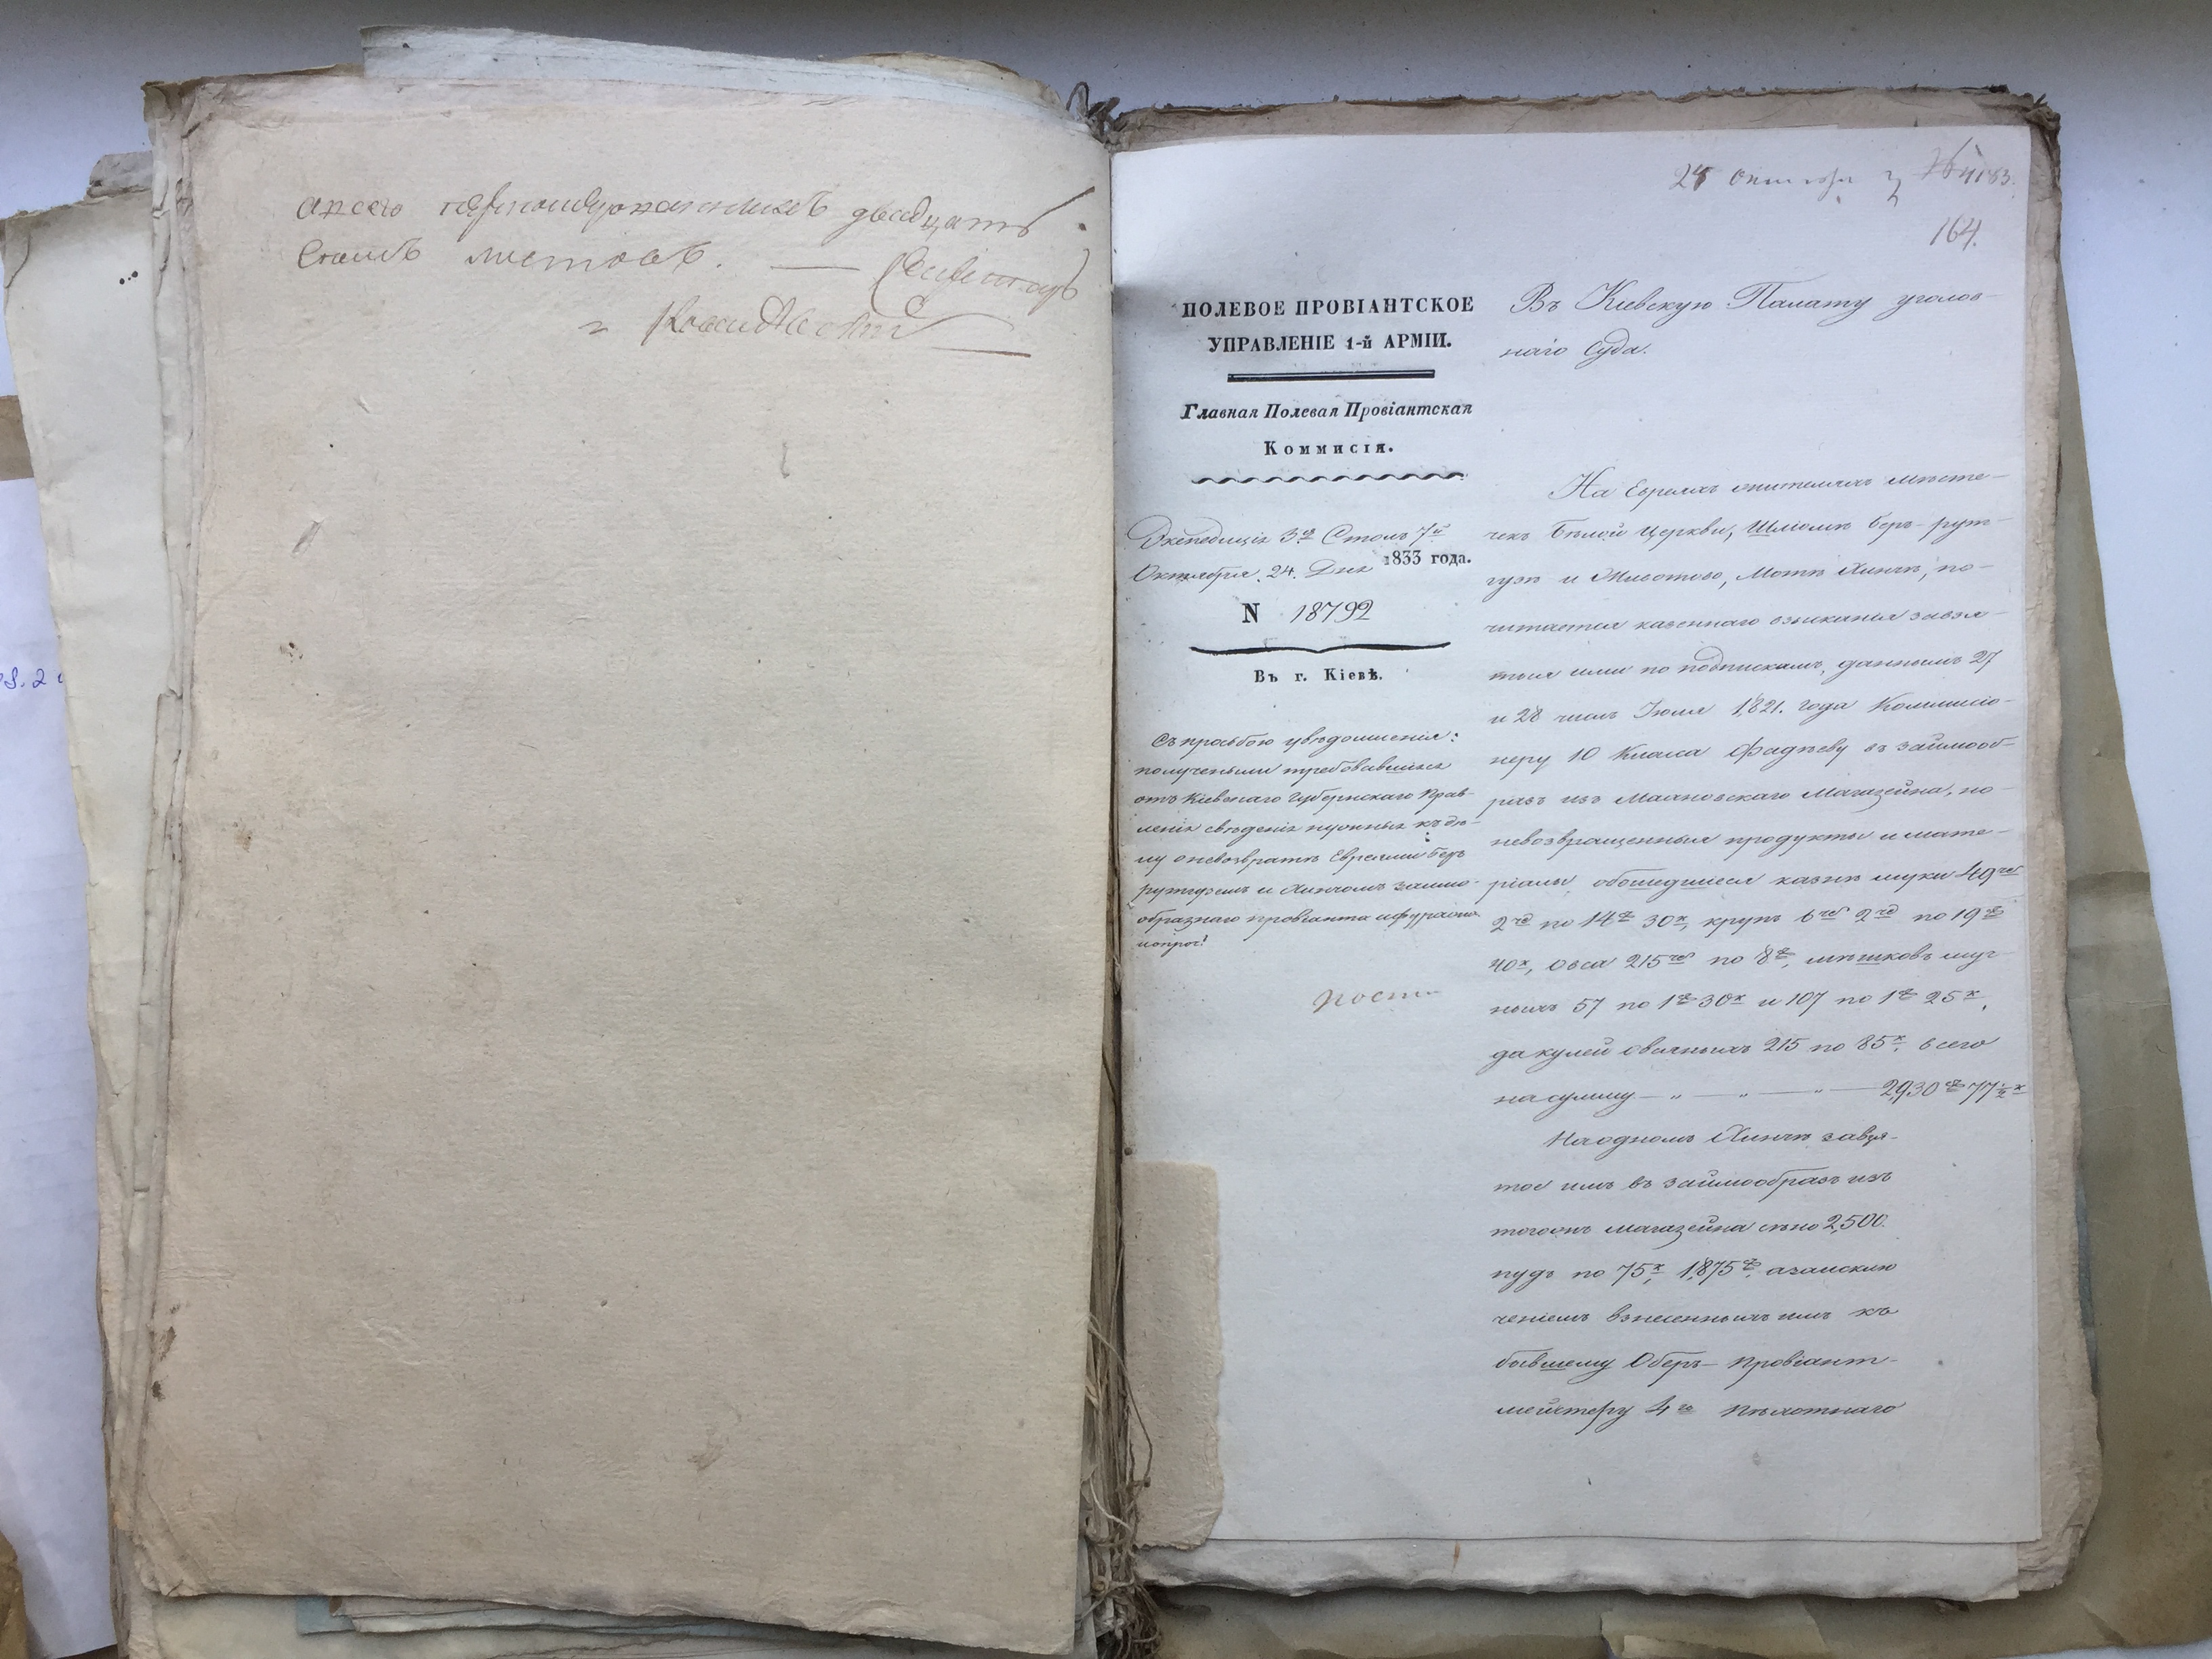 листовъ.
24 Октября
164.
ПОЛЕВОЕ ПРОВІАНТСКОЕ
УПРАВЛЕНІЕ 1-й АРМІИ.
Главная Полевая Провіантская
Коммисія.
Экспедиціи 3й Столъ 7й
Октября 24 Дня 1833 года.
N 18792
Въ г. Кіевѣ.
Съ прозьбою увѣдомленія:
полученыли требовавшіяся
отъ Кіевскаго Губернскаго Прав-
ленія свѣденія нужныя къ дѣ-
лу о невозвратѣ Евреями Беръ
рутгузомъ и Хинчомъ заимо-
образнаго провіанта и фуража
и проч:
Въ Кіевскую Палату уголов-
наго Суда.
На Евреяхъ жителяхъ мѣсте-
чекъ Бѣлой Церкви, Шліомѣ Беръ-рут-
гузѣ и Животово, Мотѣ Хинчѣ, по-
читается казеннаго взысканія завзя-
тыя ими по подпискамъ, даннымъ 27
и 28 числъ Іюля 1821. года Коммисіо-
неру 10 Класса Фадѣеву въ займооб-
разъ изъ Магазейна, но
невозвращенныя продукты и мате-
ріалы, обошедшіеся казнѣ муки 49 чет
2 чк по 14 р 30 к, крупъ 6 чет 2 чк по 19 р
40 к, овса 215 чет по 8 р, мѣшковъ муч-
ныхъ 57 по 1 р 30 к и 107 по 1 р 25 к,
да кулей овсяныхъ 215 по 85 к, всего
на сумму — „ — „ — „ — 2,930 р 77 ½ к
На одномъ Хинчѣ завзя-
тое имъ въ займообразъ изъ
тогожъ магазейна сѣно 2,500.
пудъ по 75 к, 1,875 р, а заисклю-
ченіемъ взнесенныхъ имъ къ
бывшему Оберъ-Провіант-
мейстеру 4го Пѣхотнаго